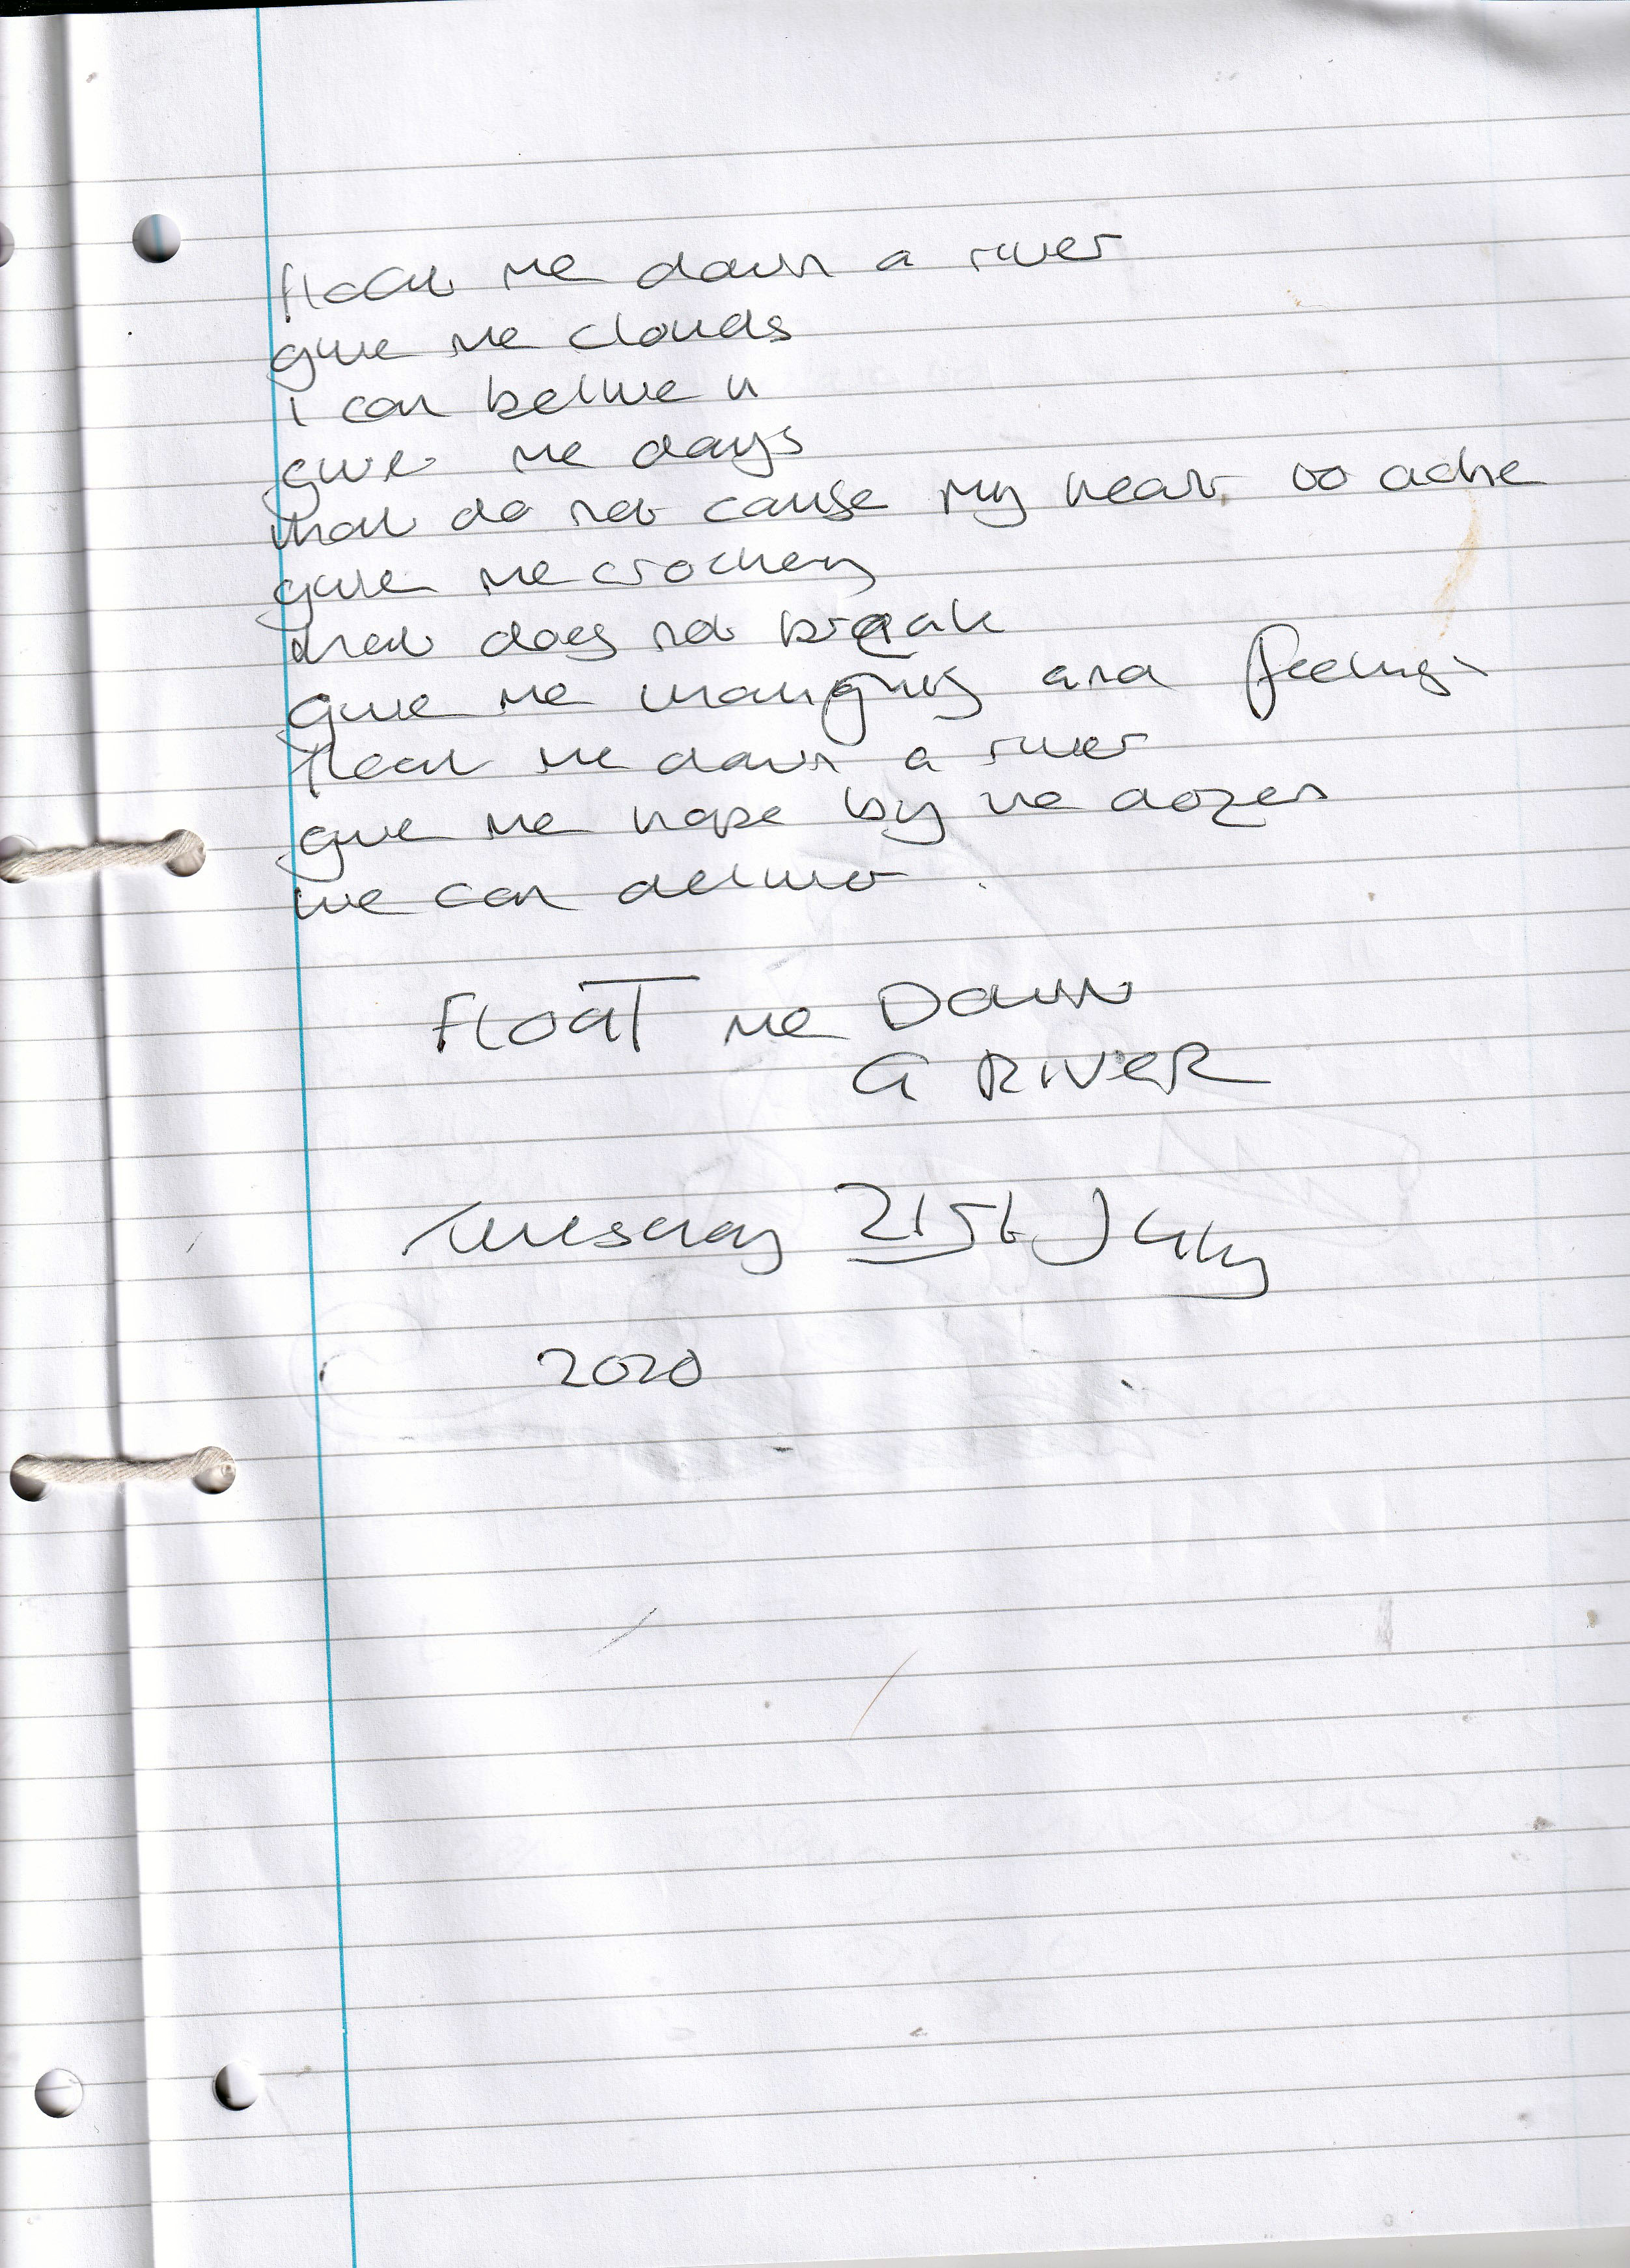 float me down a river
give me clouds
i can believe in
give me days
that do not cause my heart to ache
give me crockery
that does not break
give me thoughts and feelings
float me down a river
give me hope by the dozen
we can deliver
FLOAT me DOWN
A RIVER
Tuesday 21st July
2020